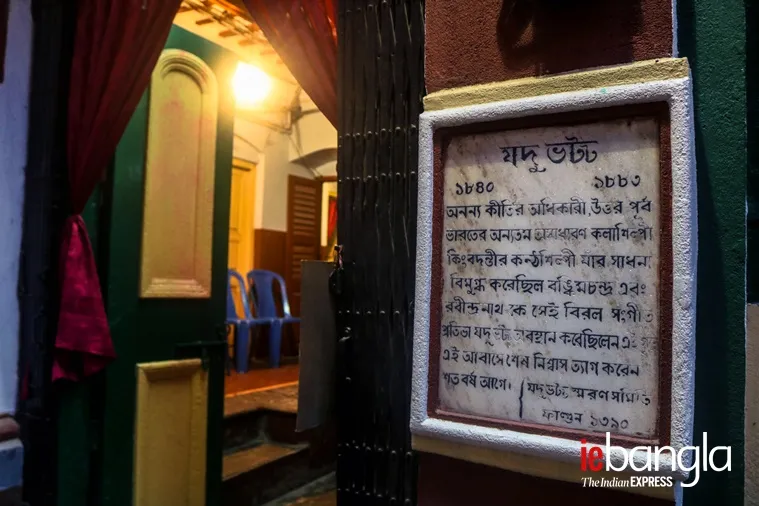 যদু ভট্ট
১৮৪০ ১৮৮৩
অনন্য কীর্তির অধিকারী উত্তর পূর্ব
ভারতের অন্যতম অসাধারণ কলাশিল্পী
কিংবদন্তীর কন্ঠশিল্পী যার সাধনা
বিমুগ্ধ করেছিল বঙ্কিমচন্দ্র এবং
রবীন্দ্রনাথ কে সেই বিরল সংগীত
প্রতিভা যদু ভট্ট অবস্থান করেছিলেন
এই আবাসে শেষ নিশ্বাস ত্যাগ করেন
শত বর্ষ আগে। যদুভট্ট স্মরণ সমিতি
ফাল্গুন ১৩৯০
iebangla
The Indian EXPRESS